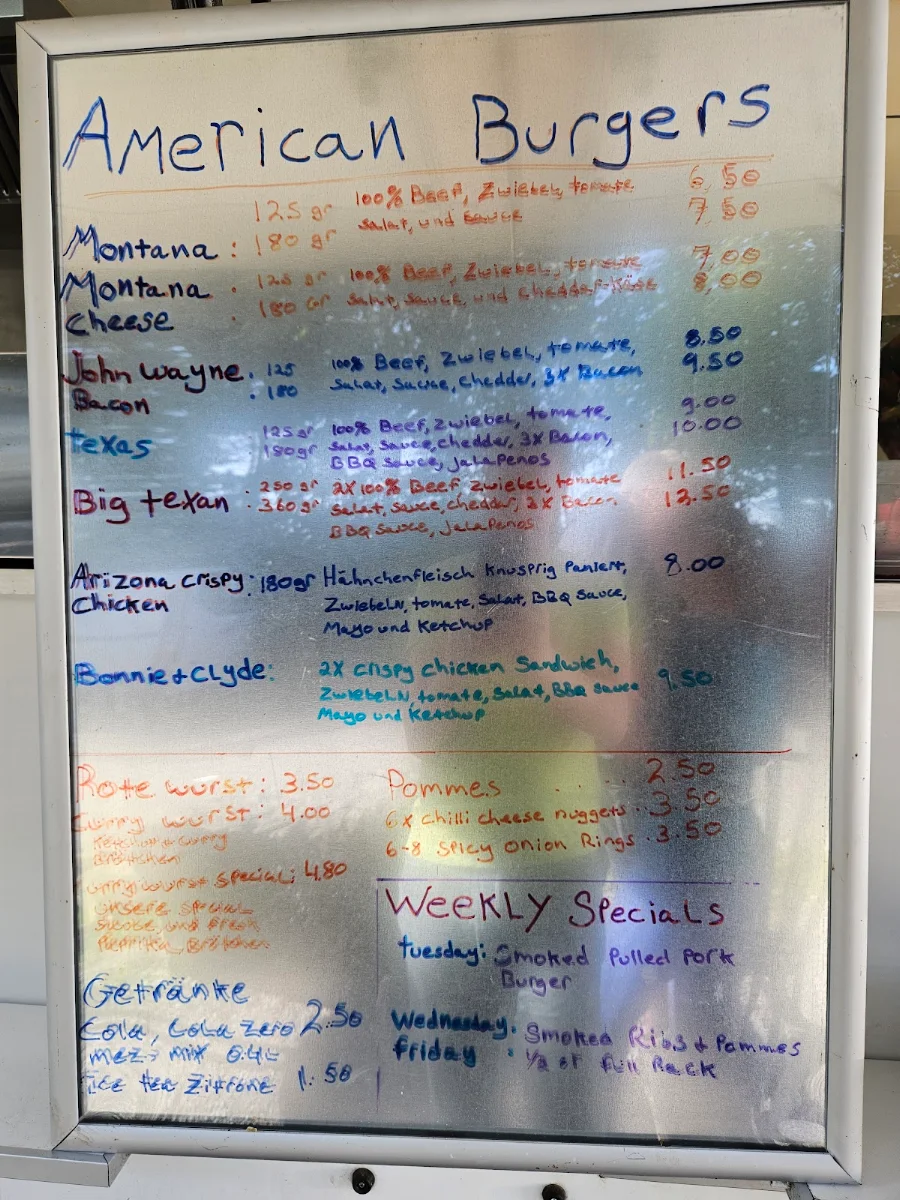 American Burgers
Montana : 125 gr 100% Beef, Zwiebel, tomate 6,50
180 gr Salat, und sauce 7,50
Montana Cheese : 125 gr 100% Beef, Zwiebel, tomate 7,00
180 Gr Salat, sauce, und chedder-käse 8,00
John Wayne : 125 100% Beef, Zwiebel, tomate, 8.50
Bacon : 180 Salat, Sauce, chedder, 3x Bacon 9.50
texas 125 gr 100% Beef, Zwiebel, tomate, 9.00
180gr Salat, Sauce, chedder, 3x Bacon, 10.00
BBQ Sauce, Jalapenos
Big texan : 250 gr 2x 100% Beef, Zwiebel, tomate 11.50
: 360 gr Salat, sauce, chedder, 3x Bacon, 13.50
BBQ Sauce, Jalapenos
Arizona Crispy : 180gr Hähnchenfleisch Knusprig Paniert, 8.00
Chicken Zwiebeln, tomate, Salat, BBQ Sauce,
Mayo und Ketchup
Bonnie + Clyde: 2x Crispy chicken Sandwich,
Zwiebeln, tomate, Salat, BBQ Sauce 9.50
Mayo und Ketchup
Rote wurst: 3.50
Curry wurst: 4.00
Ketchup + Curry
Brötchen
Curry wurst Special: 4.80
unsere special
Sauce, und fresh
Paprika, Brötchen
Getränke
Cola, Cola Zero 2.50
mezzo mix 0.4L
Ice tea Zitrone 1.50
Pommes ..... 2.50
6x chilli cheese nuggets .. 3.50
6-8 Spicy onion Rings . 3.50
Weekly Specials
tuesday: Smoked Pulled Pork
Burger
Wednesday. Smoked Ribs + Pommes
friday : 1/2 or full Rack